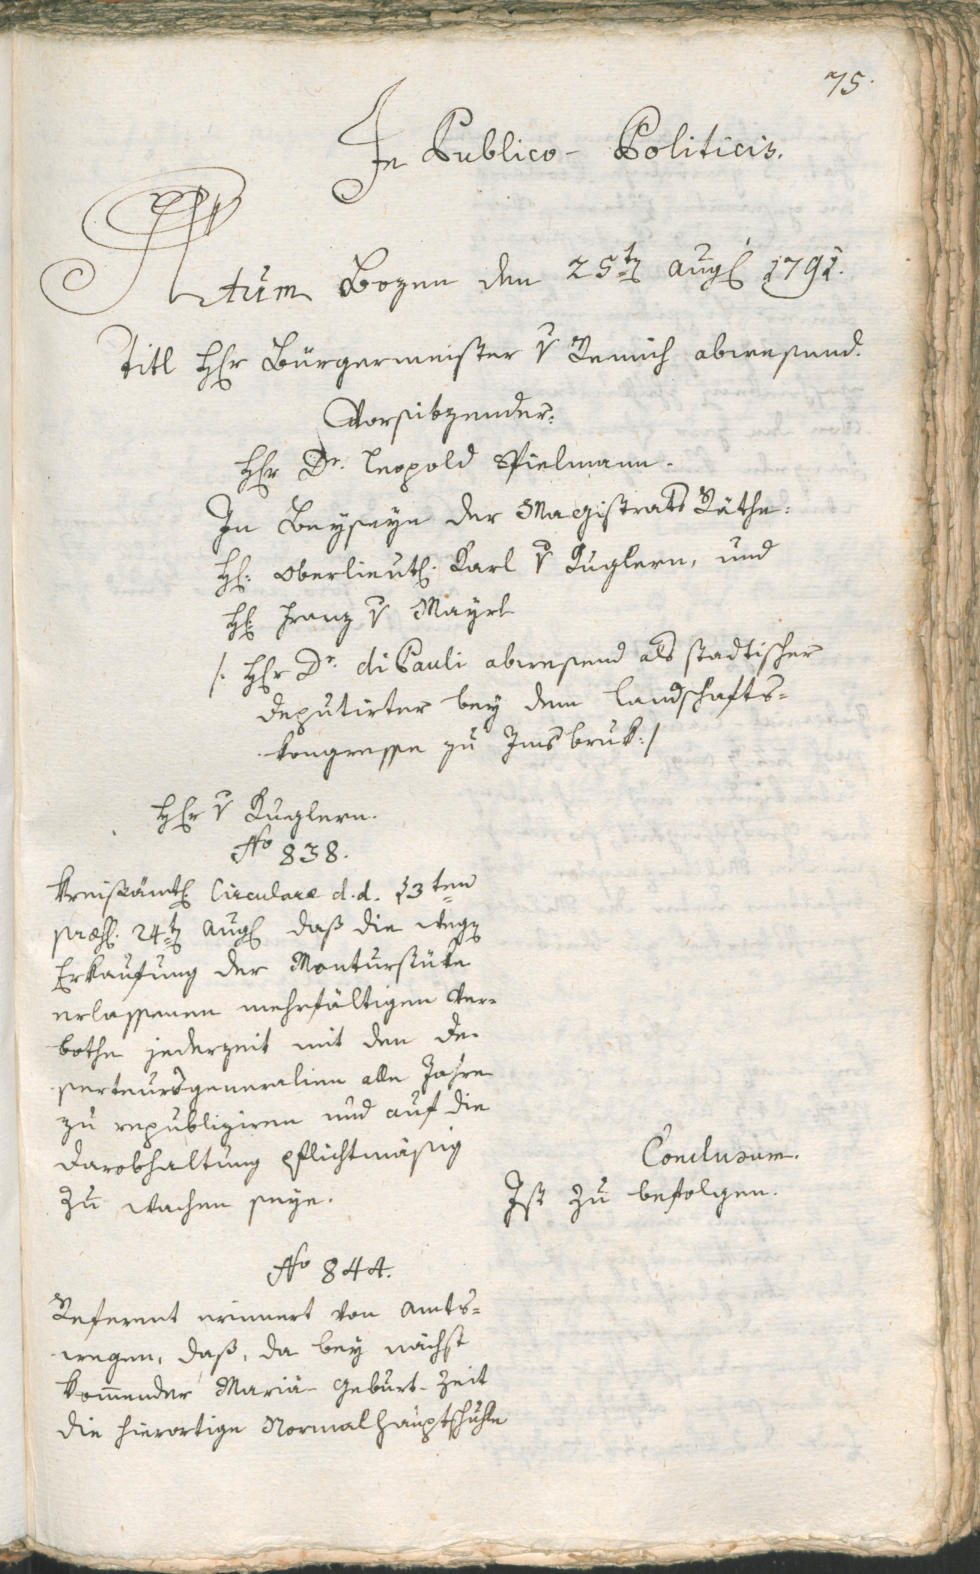 75.
In Publico-Politicis.
Actum Bozen den 25ten Augl 1791.
Titl Hr Bürgermeister v Remich abwesend.
Vorsitzender:
Hr Dr. Leopold Spielmann.
In Beyseyn der Magistrats Räthe:
H: Oberlieut: Karl v Kuglern, und
H: Franz v Mayrl
/: Hr Dr. di Pauli abwesend als stadtischer
Deputirter bey dem Landschafts-
kongresse zu Innsbruk :/
Hr v Kuglern.
No 838.
Kreisämtl Circulare d. d. 13ten
præs. 24ten Augl daß die wegen
Erkaufung der Monturstüke
erlassenen mehrfältigen Ver-
bothe jederzeit mit den De-
serteursgeneralien alle Jahre
zu republiziren und auf die
Darobhaltung pflichtmäßig
zu wachen seye.
Conclusum.
Ist zu befolgen.
No 844.
Referent erinnert von Amts-
wegen, daß, da bey nächst
kommender Mariä Geburt-Zeit
die hierortige Normalhauptschule